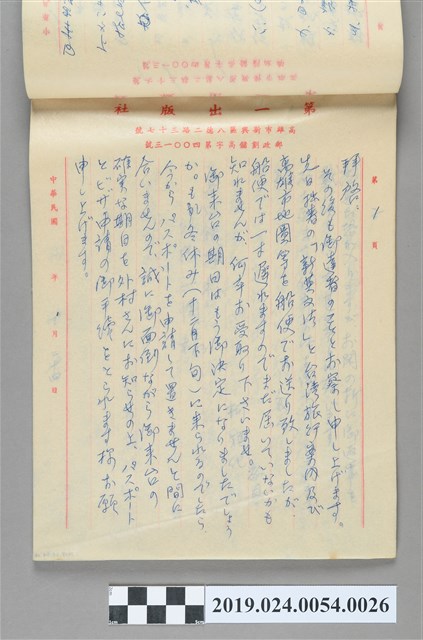 第一出版社
高雄市新興區八德二路三十七號
郵政劃儲高字第四〇〇一三號
第 1 頁
拝啓、
その後も御達者のことゝお察し申し上げます。
先日拙著の「新英文法」と台湾旅行案内及び
高雄市地圖等を船便でお送り致しましたが、
船便では一ヶ月遅れますのでまだ届いていないかも
知れませんが、何卒お受取り下さいませ。
御来台の期日はもう御決定になりましたでしょう
か。もし冬休み(十二月下旬)に来られるのでしたら
今からパスポートを申請して置きませんと間に
合いませんので、誠に御面倒ながら御来台の
確実な期日を外村さんにお知らせの上、パスポート
とビザ申請の御手続をとられます様お願
申し上げます。
中華民國 年 月 日
2019.024.0054.0026